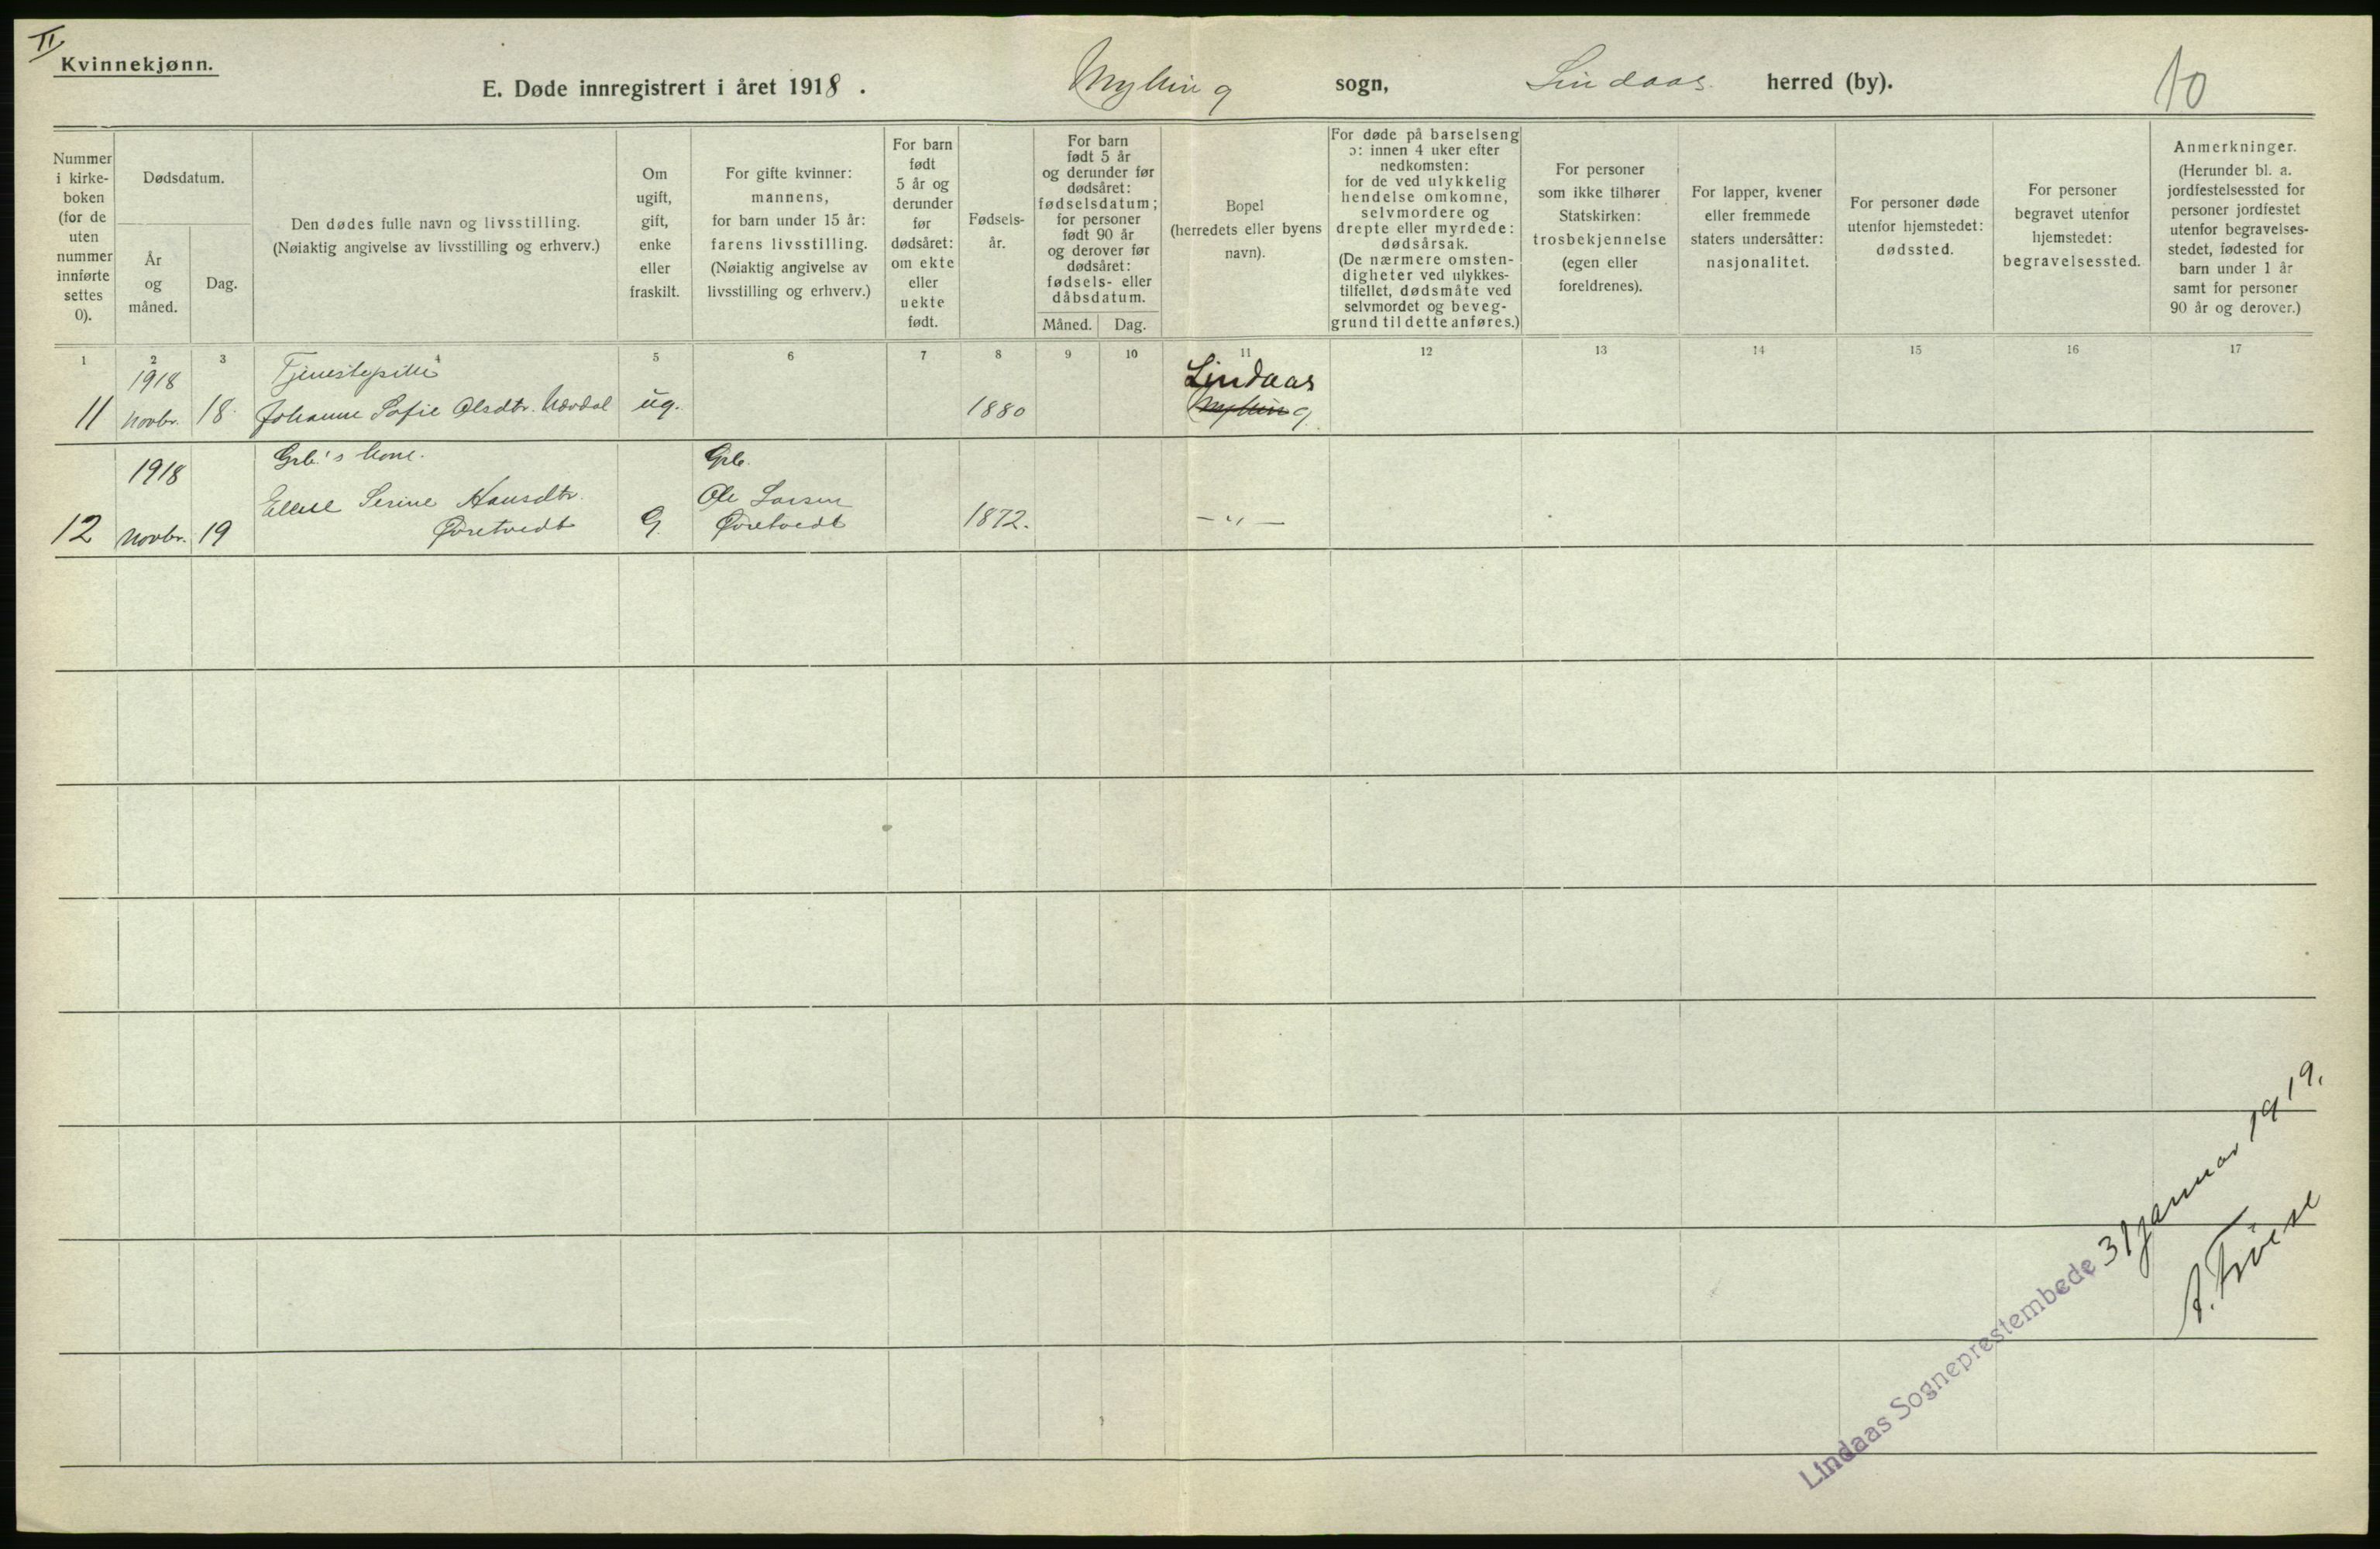 II
Kvinnekjønn.
E. Døde innregistrert i året 1918. Mykling sogn, Lindaas herred (by). 10
Nummer i kirke-boken (for de uten nummer innførte settes 0).
Dødsdatum.
År og måned.
Dag.
Den dødes fulle navn og livsstilling.
(Nøiaktig angivelse av livsstilling og erhverv.)
Om ugift, gift, enke eller fraskilt.
For gifte kvinner: mannens, for barn under 15 år: farens livsstilling. (Nøiaktig angivelse av livsstilling og erhverv.)
For barn født 5 år og derunder før dødsåret: om ekte eller uekte født.
Fødsels-år.
For barn født 5 år og derunder før dødsåret: fødselsdatum; for personer født 90 år og derover før dødsåret: fødsels- eller dåbsdatum.
Måned. Dag.
Bopel (herredets eller byens navn).
For døde på barselseng ɔ: innen 4 uker efter nedkomsten: for de ved ulykkelig hendelse omkomne, selvmordere og drepte eller myrdede: dødsårsak. (De nærmere omsten-digheter ved ulykkes-tilfellet, dødsmåte ved selvmordet og beveg-grund til dette anføres.)
For personer som ikke tilhører Statskirken: trosbekjennelse (egen eller foreldrenes).
For lapper, kvener eller fremmede staters undersåtter: nasjonalitet.
For personer døde utenfor hjemstedet: dødssted.
For personer begravet utenfor hjemstedet: begravelsessted.
Anmerkninger. (Herunder bl. a. jordfestelsessted for personer jordfestet utenfor begravelses-stedet, fødested for barn under 1 år samt for personer 90 år og derover.)
1 2 3 4 5 6 7 8 9 10 11 12 13 14 15 16 17
1918 Tjenestepike Lindaas
11 Novbr. 18. Johanne Sofie Olsdtr. ug. 1880 Mykling
1918 Grb.'s kone. Grb.
Serine Hansdtr. Ole Larsen
12 Novbr. 19 Øvretvedt G. Øvretvedt 1872. — " —
Lindaas Sogneprestembede 31 januar 1919.